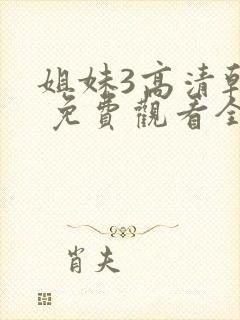 姐妹3高清韓
免費觀看全
肖夫